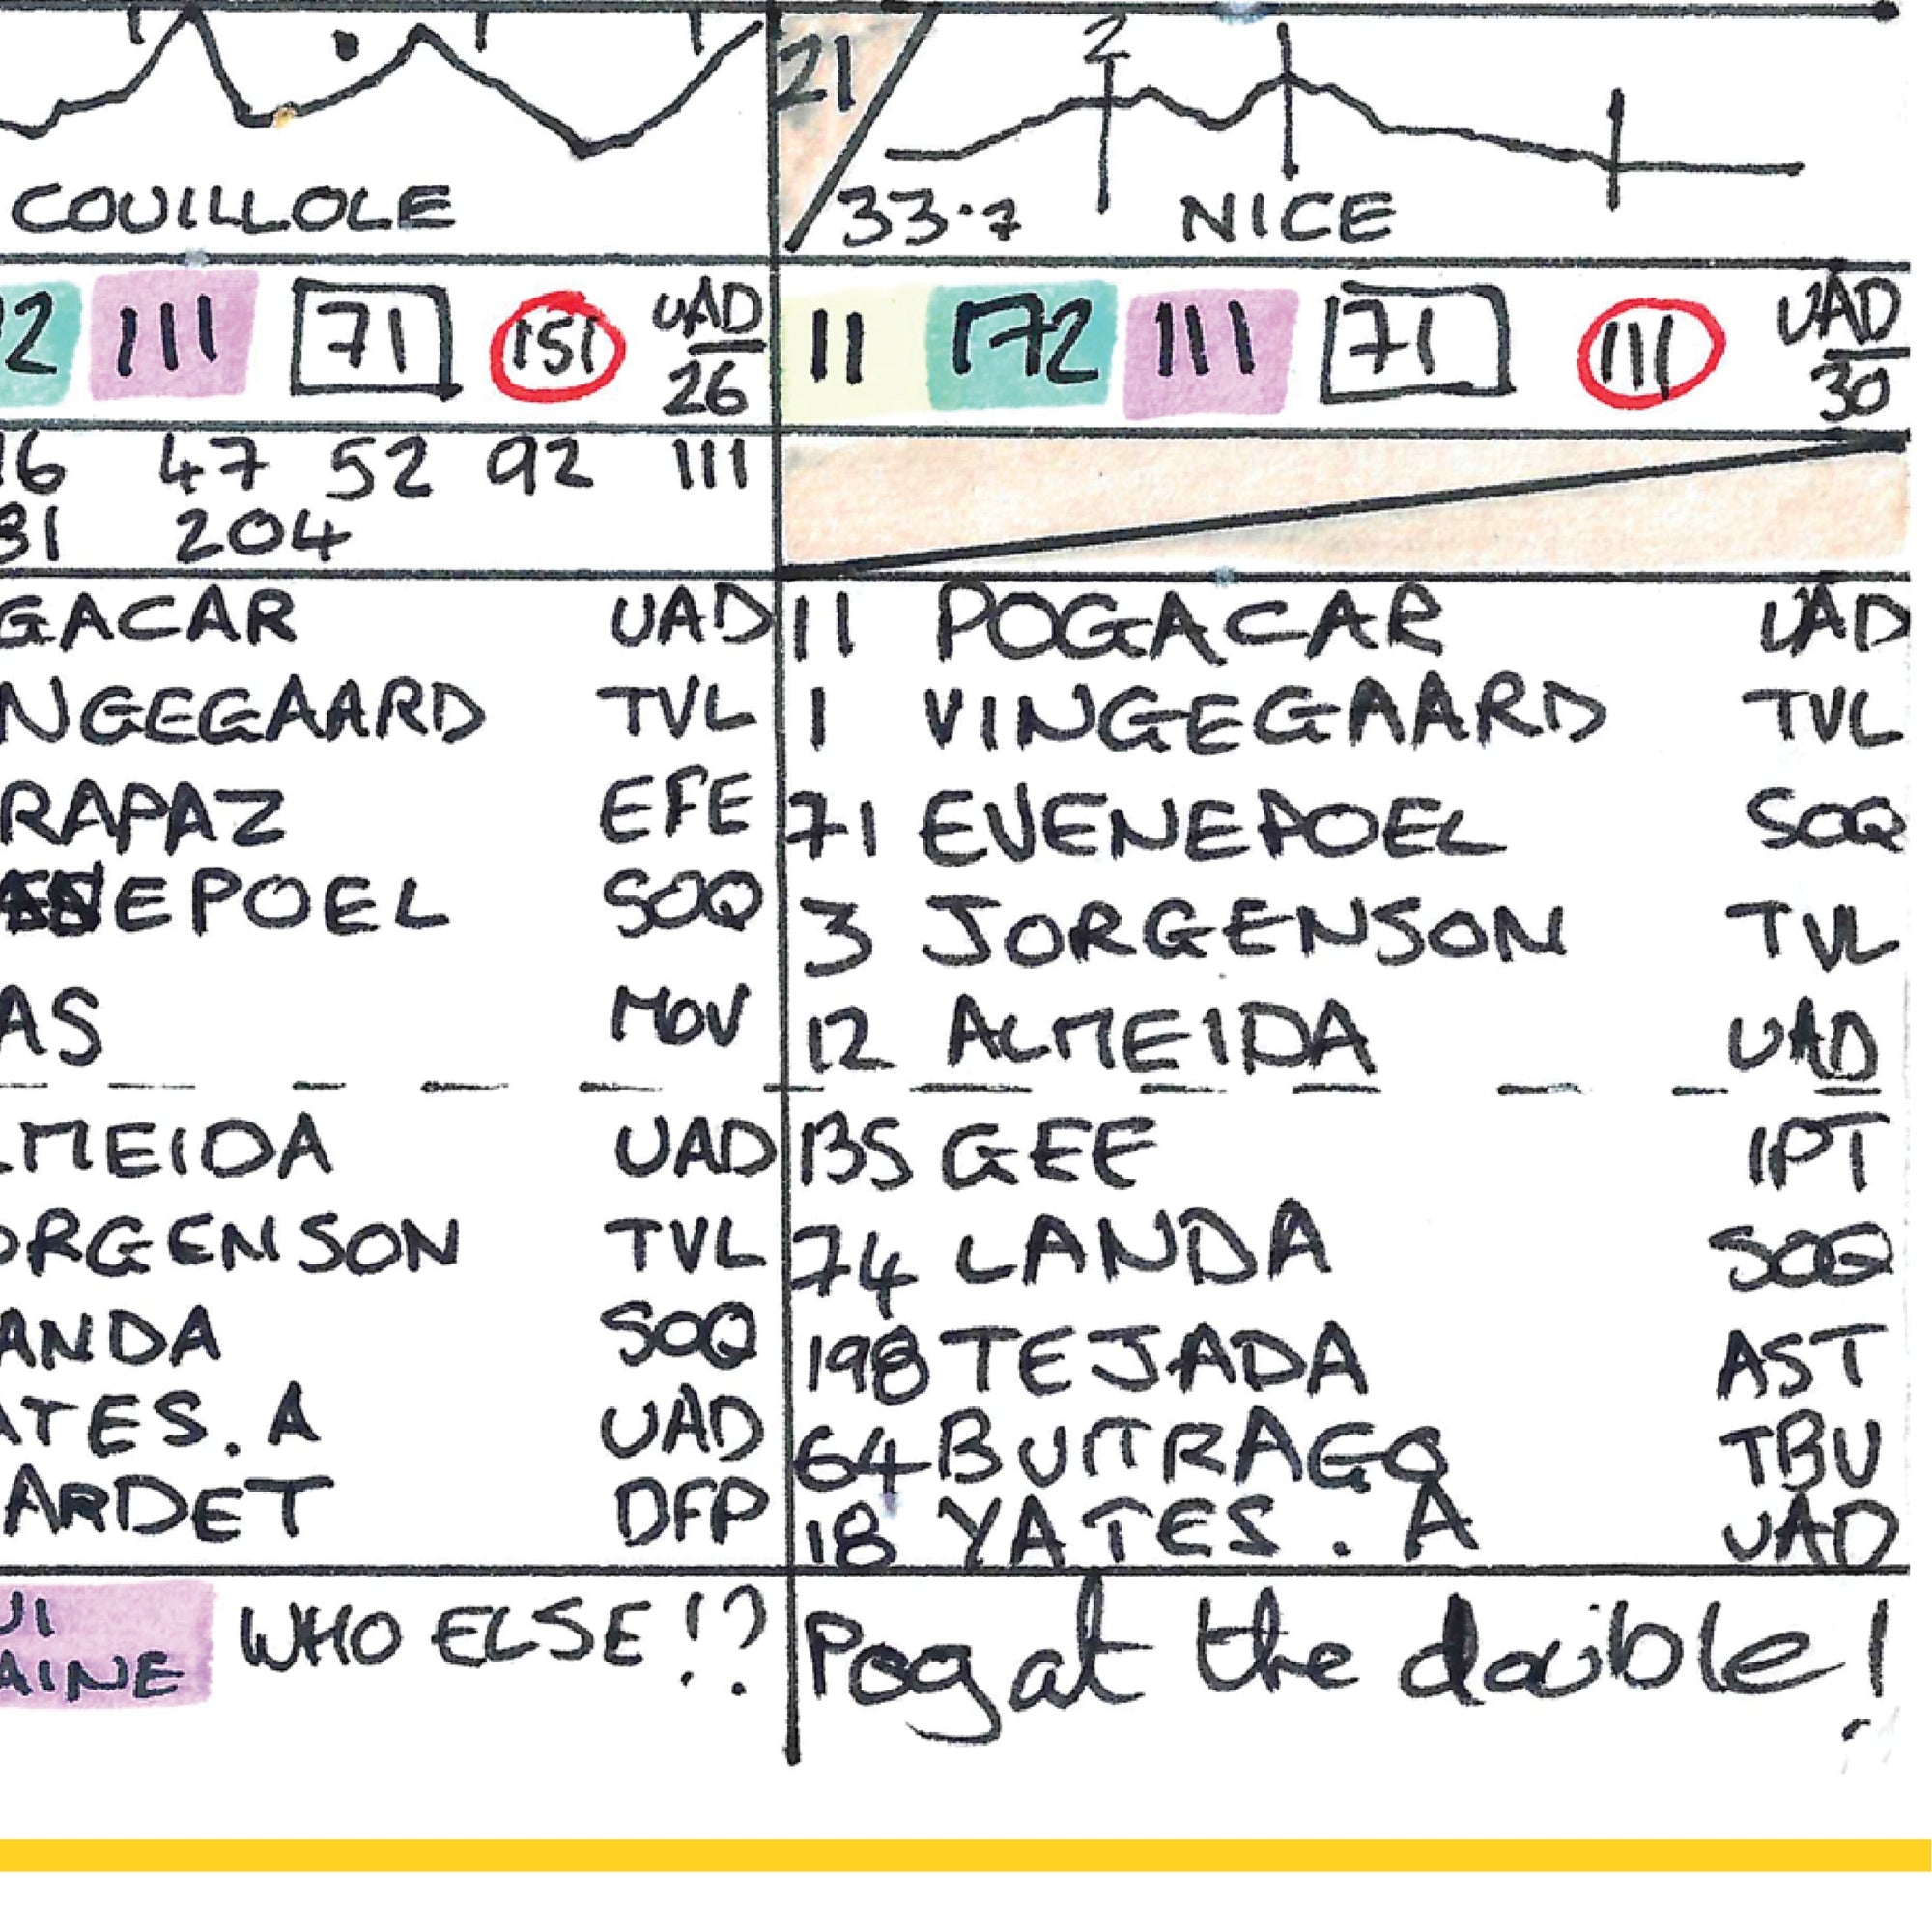 21
2
COUILLOLE
33.7 NICE
2 111 71 151 UAD
26
11 172 111 71 111 UAD
30
16 47 52 92 111
31 204
GACAR UAD
NGEGAARD TVL
RAPAZ EFE
EPOEL SOQ
AS MOV
LMEIDA UAD
ORGENSON TVL
ANDA SOQ
ATES.A UAD
ARDET DFP
UI
AINE
WHO ELSE!?
11 POGACAR UAD
1 VINGEGAARD TVL
71 EVENEPOEL SOQ
3 JORGENSON TVL
12 ALMEIDA UAD
135 GEE IPT
74 LANDA SOQ
198 TEJADA AST
64 BUITRAGO TBV
18 YATES.A UAD
Pog at the double!